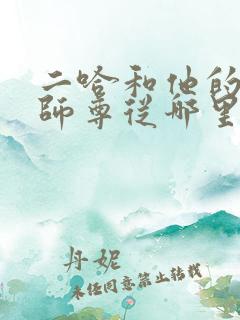 二哈和他的
師尊從哪里
丹妮
未经同意禁止转载